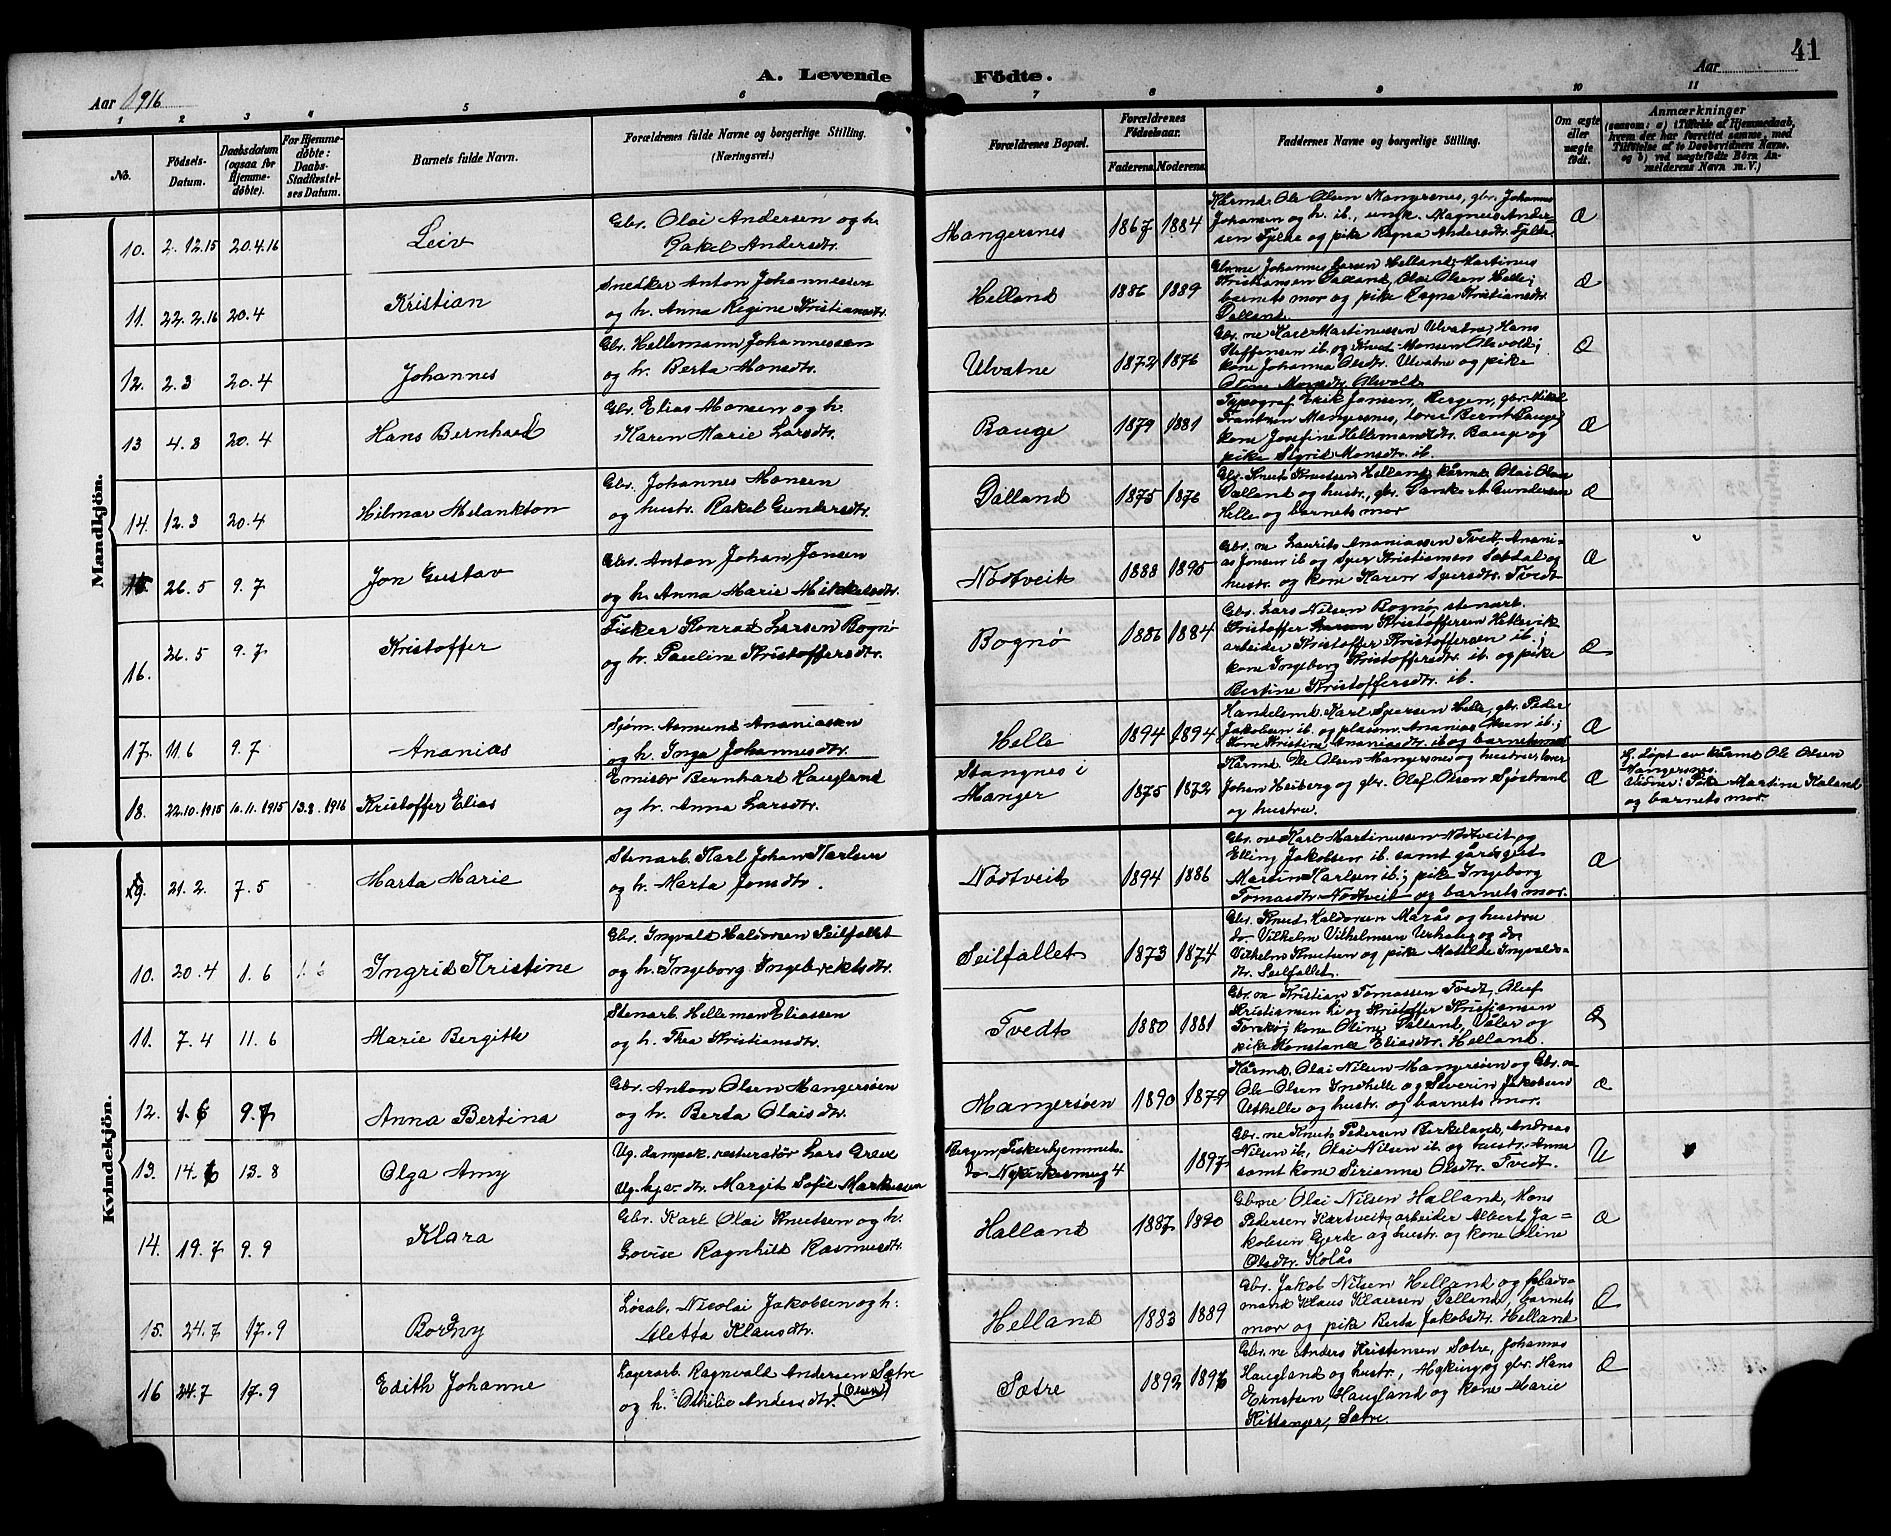 41
A. Levende Födte.
Aar 1916
Aar
1 2 3 4 5 6 7 8 9 10 11
No.
Födsels-
Datum.
Daabsdatum
(ogsaa for
Hjemme-
döbte).
For Hjemme-
döbte:
Daabs-
Stadfæstel-
ses Datum.
Barnets fulde Navn.
Forældrenes fulde Navne og borgerlige Stilling.
(Næringsvei.)
Forældrenes Bopæl.
Forældrenes
Födselsaar.
Faderens. Moderens.
Faddernes Navne og borgerlige Stilling.
Om ægte
eller
uægte
födt.
Anmærkninger
(saasom: a) i Tilfælde af Hjemmedaab,
hvem der har forrettet samme, med
Tilföielse af to Daabsvidners Navne,
og b) ved uægtefödte Börn An-
melderens Navn m. V.)
Mandkjön.
10. 2.12.15 20.4.16 Leiv
Gbr. Olai Andersen og h.
Rakel Andersdtr.
Mangersnes 1867 1884
Kårmd. Ole Olsen Mangersnes, gbr. Johannes
Johansen og h. ib., unk. Magnus Ander-
sen Fjelde og pike Ragna Andersdtr. Fjelde.
Æ
11. 22.2.16 20.4 Kristian
Snedker Anton Johannessen
og h. Anna Regine Kristiansdtr.
Helland 1886 1889
Gbrne Johannes Larsen Helland, Martinus
Kristiansen Dalland, Olai Olsen Helle;
barnets mor og pike Ragna Kristiansdtr.
Dalland.
Æ
12. 2.3 20.4 Johannes
Gbr. Hellemann Johannessen
og h. Berta Monsdtr.
Ulvatne 1872 1876
Gbr.ne Karl Martinussen Ulvatne, Hans
Steffensen ib. og Knut Monsen Olsvold;
kone Johanna Olsdtr. Ulvatne og pike
Oline Monsdtr. Olsvold
Æ
13 4.3 20.4 Hans Bernhard
Gbr. Elias Monsen og h.
Karen Marie Larsdtr.
Bauge 1879 1881
Typograf Erik Jansen, Bergen, gbr. Mikal
Frantsen Mangersnes, lærer Bernt Bauge;
kone Josefine Hellemandtr. Bauge og
pike Sigrid Monsdtr. ib.
Æ
14. 12.3 20.4 Hilmar Melankton
Gbr. Johannes Monsen
og hustr. Rakel Gundersdtr.
Dalland 1875 1876
Gbr. Knut Knutsen Helland, kårmd. Olai Olsen
Dalland og hustr., gbr. Dankert Gundersen
Helle og barnets mor
Æ
15 26.5 9.7 Jon Gustav
Gbr. Anton Johan Jonsen
og h. Anna Marie Mikkelsdtr.
Nödtveit 1888 1895
Gbr.ne Laurits Ananiassen Tvedt, Anani-
as Jonsen ib og Sjur Kristiansen Sæbdal og
hustr. og kone Karen Sjursdtr. Tvedt
Æ
16. 26.5 9.7 Kristoffer
Fisker Konrad Larsen Bognø
og h. Pauline Kristoffersdtr.
Bognø 1886 1884
Gbr. Lars Nilsen Bognø, stenarb.
Kristoffer Kristoffersen Hetlevik
arbeider Kristoffer Kristoffersen ib.;
kone Ingeborg Kristoffersdtr. ib. og pike
Bertine Kristoffersdtr. ib.
Æ
17. 11.6 9.7 Ananias
Sjøm. Asmund Ananiassen
og h. Inga Johannesdtr.
Helle 1894 1894
Handelsmd. Karl Sjursen Helle, gbr. Peder
Jakobsen ib. og pladsm. Ananias Olsen ib.;
kone Kristine Ananiasdtr. ib og barnets mor
Æ
18. 22.10.1915 10.11.1915 13.8.1916 Kristoffer Elias
Emisær Bernhard Haugland
og h. Anna Larsdtr.
Stangnes i
Manger 1875 1872
Kårmd. Ole Olsen Mangersnes og hustru, lærer
Johan Heiberg og gbr. Olaf Olsen Sjøstrand
og hustru.
Æ
Hj. døpt av kårmd Ole Olsen
Mangersnes.
Vidner: Pike Martine Kaland
og barnets mor.
Kvindekjön.
9. 21.2. 7.5 Marta Marie
Stenarb. Karl Johan Karlsen
og h. Marta Jonsdtr.
Nödtveit 1894 1886
Gbr.ne Karl Martinussen Nödtveit og
Elling Jakobsen ib. samt gårdsgut
Martin Karlsen ib.; pike Ingeborg
Tomasdtr. Nödtveit og barnets mor.
Æ
10. 20.4 1.6 1.6 Ingrid Kristine
Gbr. Ingvald Haldorsen Seilfallet
og h. Ingeborg Ingebrektsdtr.
Seilfallet 1873 1874
Gbr. Knud Haldorsen Marås og hustru
do Vilhelm Vilhelmsen Urhaug og do
Vilhelm Knutsen og pike Matilde Ingvalds-
dtr. Seilfallet.
11. 7.4 11.6 Marie Bergithe
Stenarb. Helleman Eliassen
og h. Thea Kristiansdtr.
Tvedt 1880 1881
Gbr.ne Kristian Tomassen Tvedt, Oluf
Kristiansen Li og Kristoffer Kristiansen
Torskø; kone Oline Dalland, Våler og
pike Konstance Eliasdtr. Helland.
Æ
12. 1.6 9.7 Anna Bertina
Gbr. Anton Olsen Mangersøen
og h. Berta Olaisdtr.
Mangersøen 1890 1879
Kårmd. Olai Nilsen Mangersøen og Gbr.ne
Ole Olsen Indhelle og Severin Jakobsen
Uthelle og hustr. og barnets mor.
Æ
13. 14.6 13.8 Olga Amy
Ug. dampsk. restauratør Lars Greve
Ug. hjv. dtr. Margit Sofie Markussen
Bergen, Fiskerhjemmet
do Nykirkesmug 4 1897
Gbr.ne Knut Pedersen Birkeland, Andreas
Nilsen ib, Olai Nilsen ib. og hustr. Anna
samt kone Serianne Olsdtr. Tvedt.
U
14. 19.7 9.9 Klara
Gbr. Karl Olai Knutsen og h.
Lovise Ragnhild Rasmusdtr.
Halland 1887 1890
Gbrne Olai Nilsen Halland, Mons
Pedersen Kartveit, arbeider Albert Ja=
kobsen Gjerde og hustr. og kone Oline
Olsdtr. Kolås
Æ
15. 24.7 17.9 Borgny
Løsab. Nicolai Jakobsen og h.
Aletta Klausdtr.
Helland 1883 1889
Gbr. Jakob Nilsen Helland og plads-
mand Klaus Klausen Dalland, barnets
mor og pike Berta Jakobsdtr. Helland
Æ
16 24.7 17.9 Edith Johanne
Lagerarb. Ragnvald Andersen Sætre
og h. Othilie Andersdtr. (Olsen)
Sætre 1892 1896
Gbr.ne Anders Kristensen Sætre, Johannes
Haugland og hustr., Møking og gbr. Hans
Ernstsen Haugland og kone Marie
Kittanger, Sætre
Æ